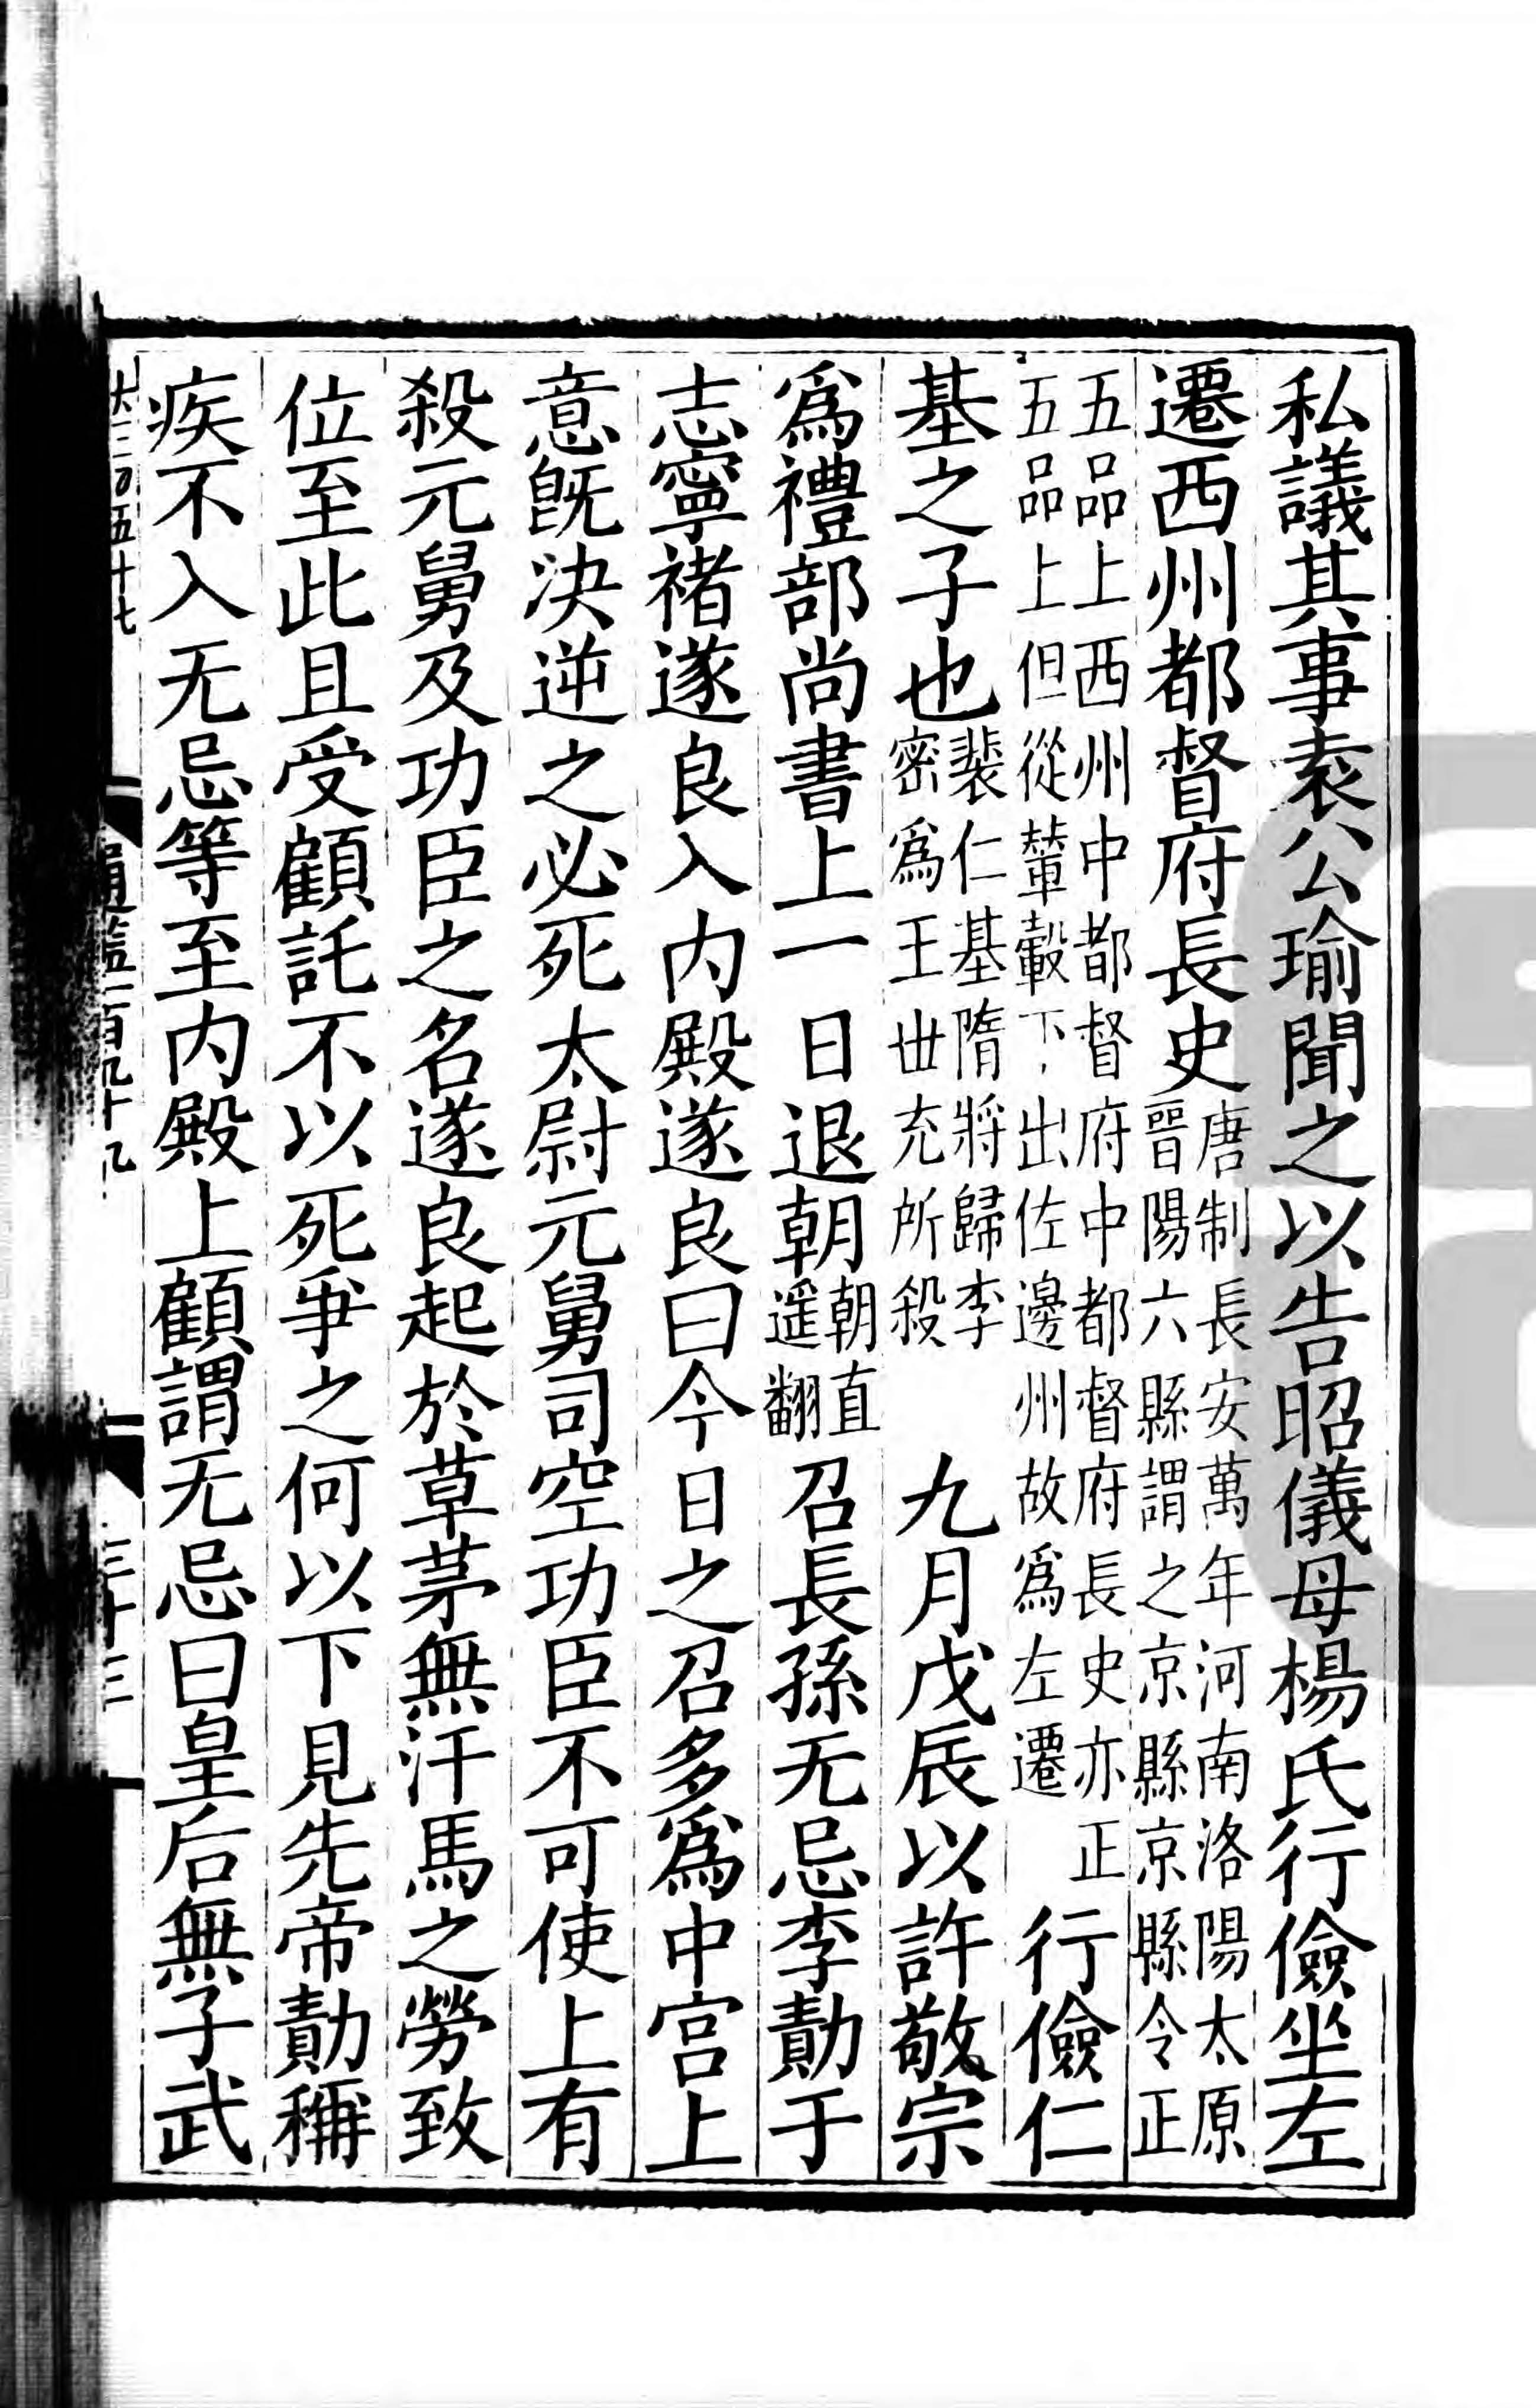 私議其事袁公瑜聞之以告昭儀母楊氏行儉坐左
遷西州都督府長史唐制長安萬年河南洛陽太原晉陽六縣謂之京縣京縣令正
五品上西州中都督府中都督府長史亦正五品上但從輦轂下出佐邊州故爲左遷行儉仁
基之子也裴仁基隋將歸李密爲王世充所殺九月戊辰以許敬宗
爲禮部尚書上一日退朝朝直遥翻召長孫无忌李勣于
志寧褚遂良入内殿遂良曰今日之召多爲中宫上
意旣决逆之必死太尉元舅司空功臣不可使上有
殺元舅及功臣之名遂良起於草茅無汗馬之勞致
位至此且受顧託不以死爭之何以下見先帝勣稱
疾不入无忌等至内殿上顧謂无忌曰皇后無子武
通鑑一百九十九